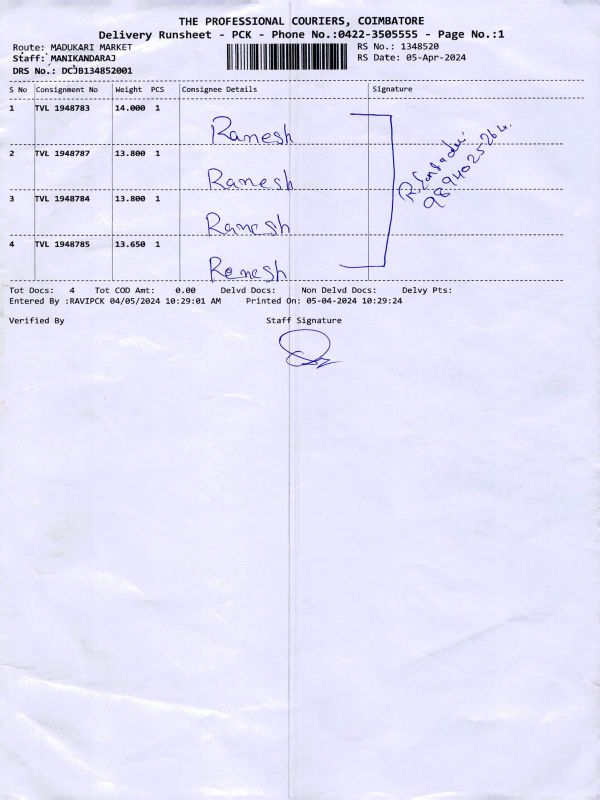 THE PROFESSIONAL COURIERS, COIMBATORE
Delivery Runsheet - PCK - Phone No.:0422-3505555 - Page No.:1
Route: MADUKARI MARKET RS No.: 1348520
Staff: MANIKANDARAJ RS Date: 05-Apr-2024
DRS No.: DCJB134852001
S No Consignment No Weight PCS Consignee Details Signature
1 TVL 1948783 14.000 1
Ramesh
2 TVL 1948787 13.800 1
Ramesh
3 TVL 1948784 13.800 1
Ramesh
4 TVL 1948785 13.650 1
Remesh
R.
9894025264
Tot Docs: 4 Tot COD Amt: 0.00 Delvd Docs: Non Delvd Docs: Delvy Pts:
Entered By :RAVIPCK 04/05/2024 10:29:01 AM Printed On: 05-04-2024 10:29:24
Verified By Staff Signature